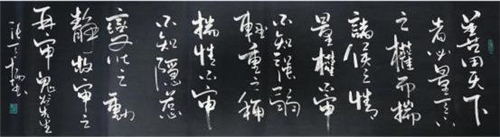 善用天下
者必量天下
之權而揣
諸侯之情
量權不審
不知强弱
輕重之稱
揣情不審
不知隱匿
變化之動
静故審之
再審鬼谷先生